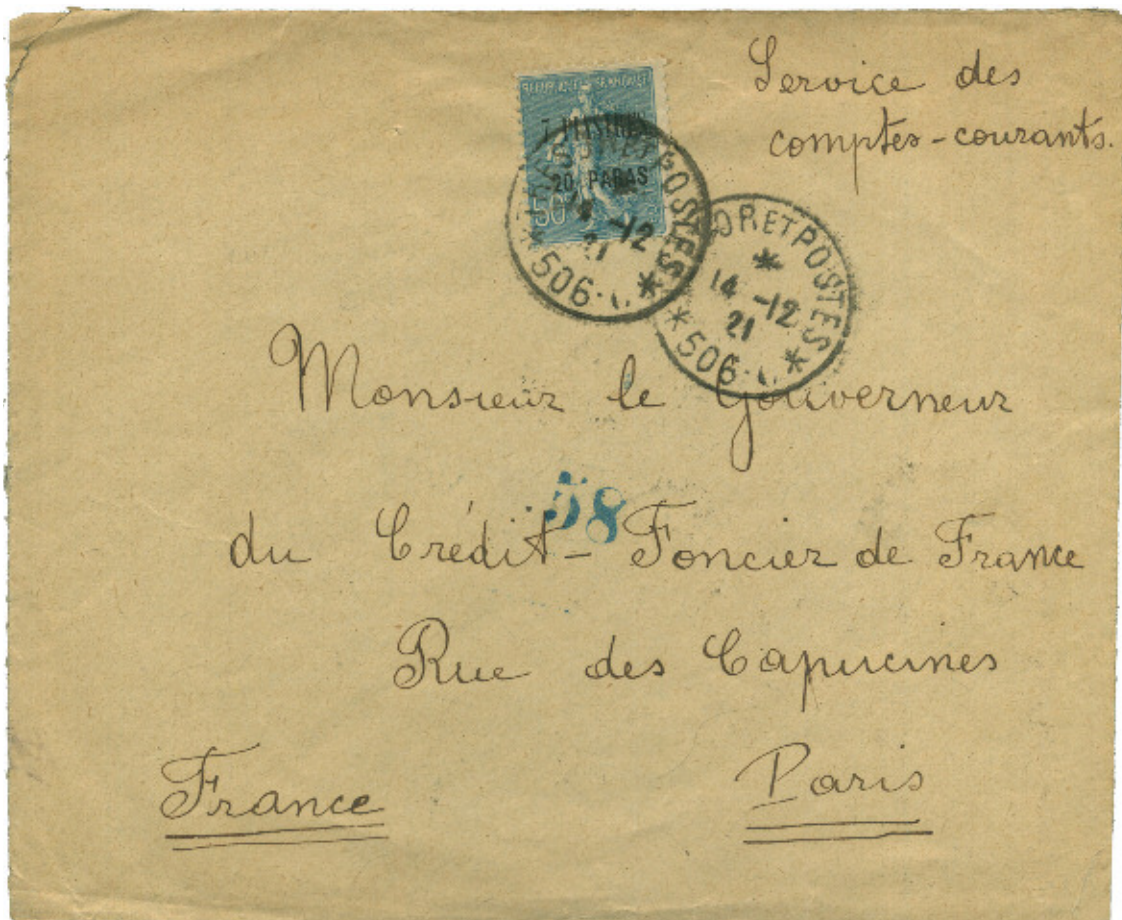 Service des
comptes-courants.
7 PIASTRES
20 PARAS
50
POSTES
14 -12
21
*506
OR ET POSTES
*
14 -12
21
*506 *
Monsieur le Gouverneur
58
du Crédit-Foncier de France
Rue des Capucines
France Paris